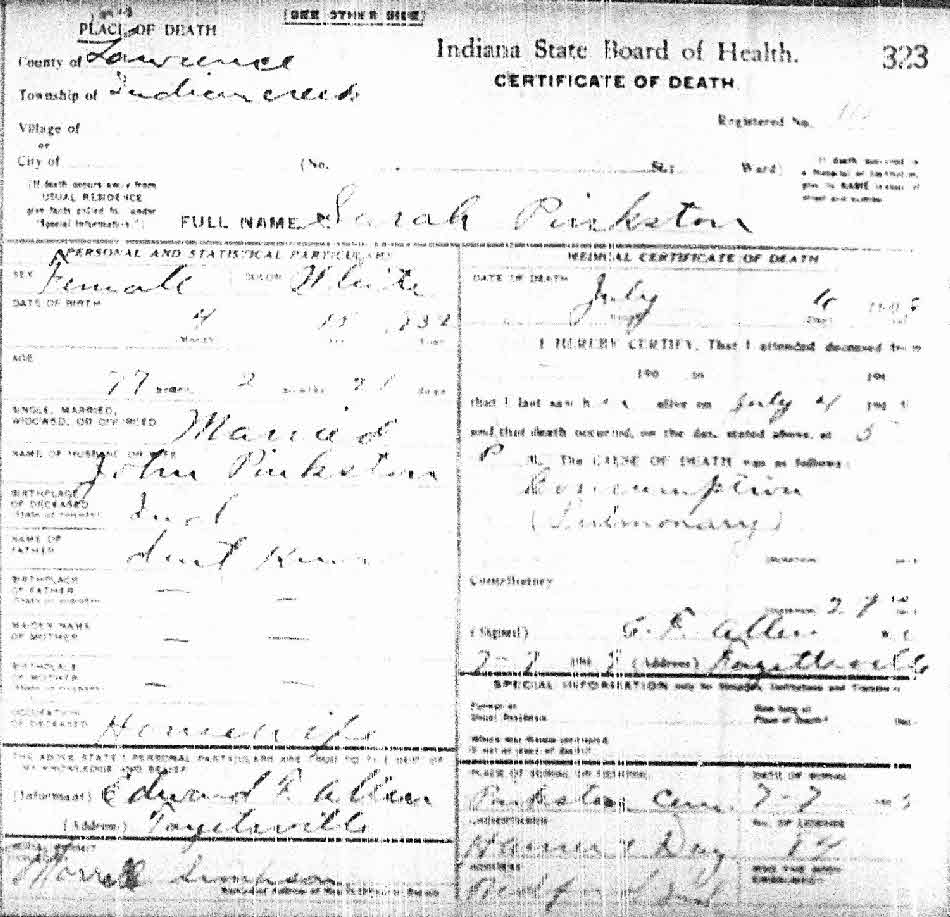 (SEE OTHER SIDE)
PLACE OF DEATH
County of Lawrence
Township of Indiancreek
Village of
or
City of
Indiana State Board of Health.
CERTIFICATE OF DEATH.
323
Registered No.
(No.
St.;
Ward)
(If death occurs away from
USUAL RESIDENCE
give facts called for under
"Special Information.")
FULL NAME Sarah Pinkston
PERSONAL AND STATISTICAL PARTICULARS
SEX Female COLOR White
DATE OF BIRTH
4 15 832
Month Day Year
AGE
77 years, 2 months 21 days
SINGLE, MARRIED,
WIDOWED, OR DIVORCED Married
NAME OF HUSBAND OR WIFE
John Pinkston
BIRTHPLACE
OF DECEASED
State or country Ind
NAME OF
FATHER Dont Know
BIRTHPLACE
OF FATHER — —
State or country
MAIDEN NAME
OF MOTHER — —
BIRTHPLACE
OF MOTHER — —
State or country
OCCUPATION
OF DECEASED Housewife
THE ABOVE STATED PERSONAL PARTICULARS ARE TRUE TO THE BEST OF
MY KNOWLEDGE AND BELIEF
(Informant) Edward F. Allen
(Address) Fayetteville
Simpson
MEDICAL CERTIFICATE OF DEATH
DATE OF DEATH
July 6 190
I HEREBY CERTIFY, That I attended deceased from
190 to 190
that I last saw h alive on July 4 190
and that death occurred, on the day stated above, at 5
P M. The CAUSE OF DEATH was as follows:
Consumption
(Pulmonary)
Contributory
(Signed) E. F. Allen M. D.
7-7 190 (Address) Fayetteville
SPECIAL INFORMATION only for Hospitals, Institutions and Transients
Former or
Usual Residence
How long at
Place of Death?
Where was disease contracted,
if not at place of death?
PLACE OF BURIAL OR REMOVAL
Pinkston Cem
DATE OF BURIAL
7-7
UNDERTAKER
Day
NO. OF LICENSE
ADDRESS
Bedford Ind
WAS THE BODY
EMBALMED